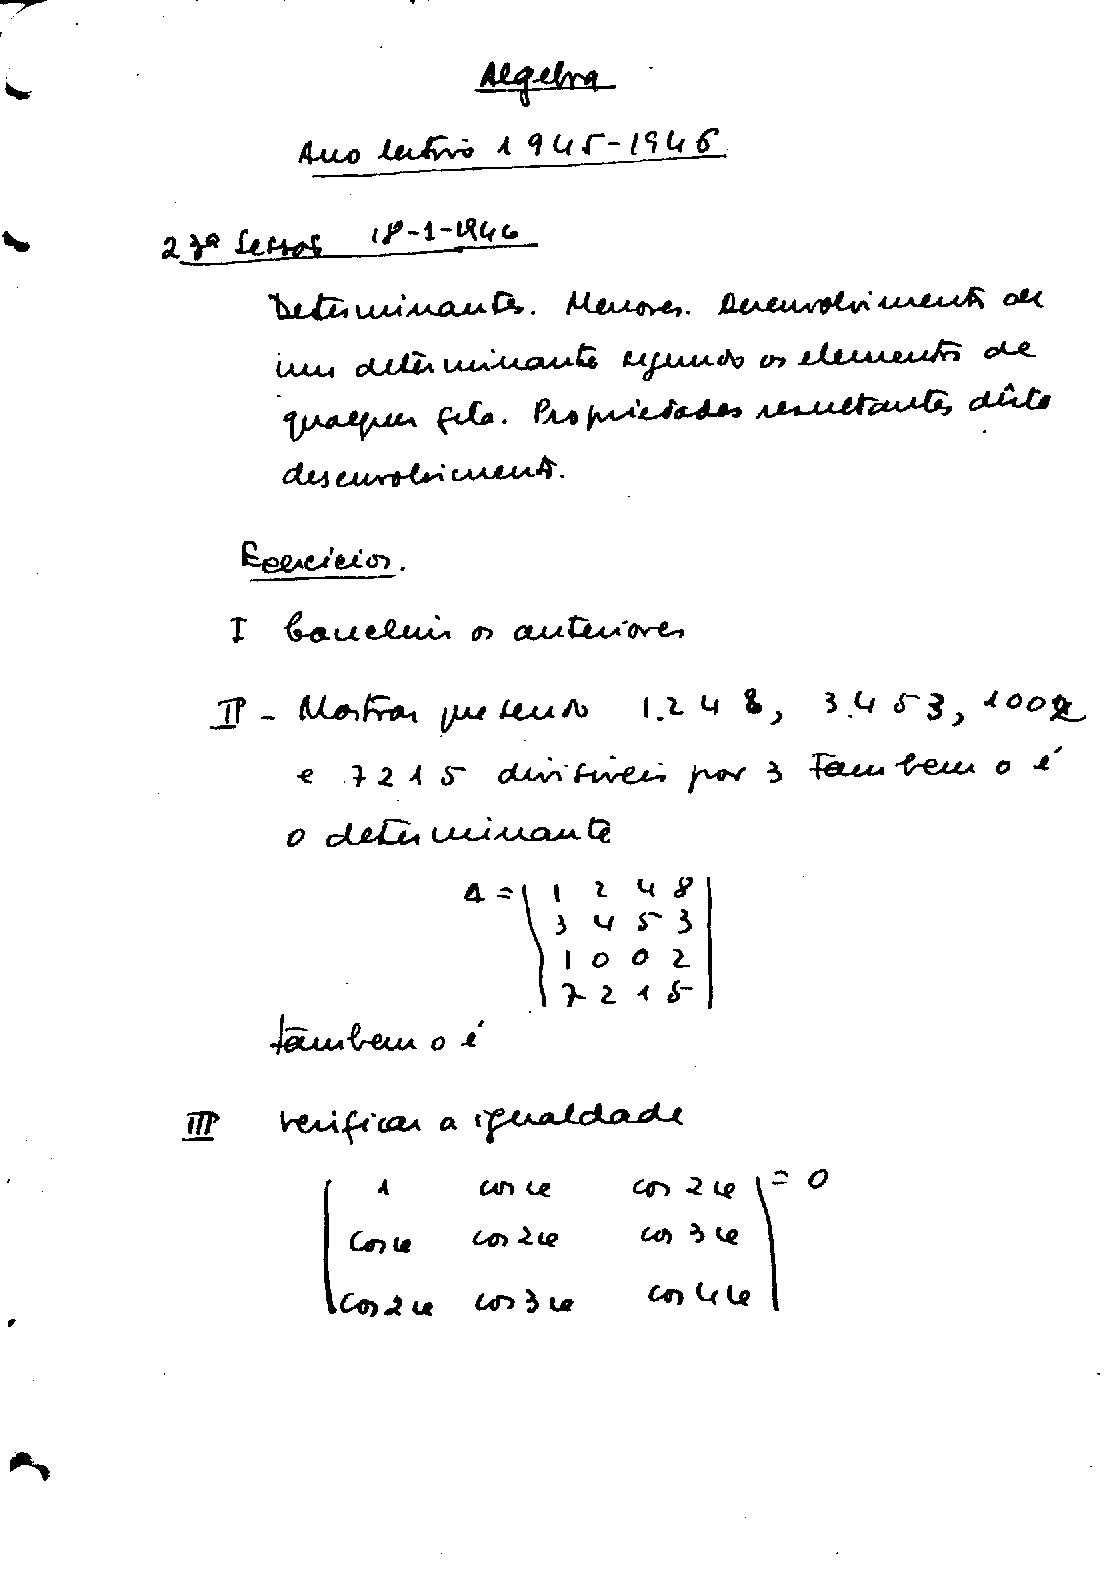 Algebra
Ano lectivo 1945-1946
23ª Sessão 18-1-1946
Determinantes. Menores. Desenvolvimento de
um determinante segundo os elementos de
qualquer fila. Propriedades resultantes dêste
desenvolvimento.
Exercícios.
I Concluir os anteriores
II - Mostrar que sendo 1.248, 3.453, 1002
e 7215 divisíveis por 3 tambem o é
o determinante
Δ = | 1 2 4 8 |
3 4 5 3
1 0 0 2
7 2 1 5
tambem o é
III Verificar a igualdade
| 1 cos φ cos 2φ | = 0
cos φ cos 2φ cos 3φ
cos 2φ cos 3φ cos 4φ